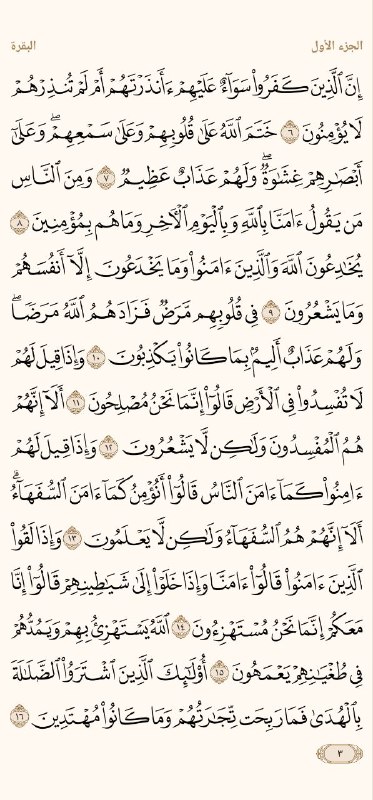 الجزء الأول البقرة
إِنَّ ٱلَّذِينَ كَفَرُوا۟ سَوَآءٌ عَلَيْهِمْ ءَأَنذَرْتَهُمْ أَمْ لَمْ تُنذِرْهُمْ
لَا يُؤْمِنُونَ ٦ خَتَمَ ٱللَّهُ عَلَىٰ قُلُوبِهِمْ وَعَلَىٰ سَمْعِهِمْ ۖ وَعَلَىٰٓ
أَبْصَـٰرِهِمْ غِشَـٰوَةٌ ۖ وَلَهُمْ عَذَابٌ عَظِيمٌ ٧ وَمِنَ ٱلنَّاسِ
مَن يَقُولُ ءَامَنَّا بِٱللَّهِ وَبِٱلْيَوْمِ ٱلْـَٔاخِرِ وَمَا هُم بِمُؤْمِنِينَ ٨
يُخَـٰدِعُونَ ٱللَّهَ وَٱلَّذِينَ ءَامَنُوا۟ وَمَا يَخْدَعُونَ إِلَّآ أَنفُسَهُمْ
وَمَا يَشْعُرُونَ ٩ فِى قُلُوبِهِم مَّرَضٌ فَزَادَهُمُ ٱللَّهُ مَرَضًا ۖ
وَلَهُمْ عَذَابٌ أَلِيمٌۢ بِمَا كَانُوا۟ يَكْذِبُونَ ١٠ وَإِذَا قِيلَ لَهُمْ
لَا تُفْسِدُوا۟ فِى ٱلْأَرْضِ قَالُوٓا۟ إِنَّمَا نَحْنُ مُصْلِحُونَ ١١ أَلَآ إِنَّهُمْ
هُمُ ٱلْمُفْسِدُونَ وَلَـٰكِن لَّا يَشْعُرُونَ ١٢ وَإِذَا قِيلَ لَهُمْ
ءَامِنُوا۟ كَمَآ ءَامَنَ ٱلنَّاسُ قَالُوٓا۟ أَنُؤْمِنُ كَمَآ ءَامَنَ ٱلسُّفَهَآءُ ۗ
أَلَآ إِنَّهُمْ هُمُ ٱلسُّفَهَآءُ وَلَـٰكِن لَّا يَعْلَمُونَ ١٣ وَإِذَا لَقُوا۟
ٱلَّذِينَ ءَامَنُوا۟ قَالُوٓا۟ ءَامَنَّا وَإِذَا خَلَوْا۟ إِلَىٰ شَيَـٰطِينِهِمْ قَالُوٓا۟ إِنَّا
مَعَكُمْ إِنَّمَا نَحْنُ مُسْتَهْزِءُونَ ١٤ ٱللَّهُ يَسْتَهْزِئُ بِهِمْ وَيَمُدُّهُمْ
فِى طُغْيَـٰنِهِمْ يَعْمَهُونَ ١٥ أُو۟لَـٰٓئِكَ ٱلَّذِينَ ٱشْتَرَوُا۟ ٱلضَّلَـٰلَةَ
بِٱلْهُدَىٰ فَمَا رَبِحَت تِّجَـٰرَتُهُمْ وَمَا كَانُوا۟ مُهْتَدِينَ ١٦
٣